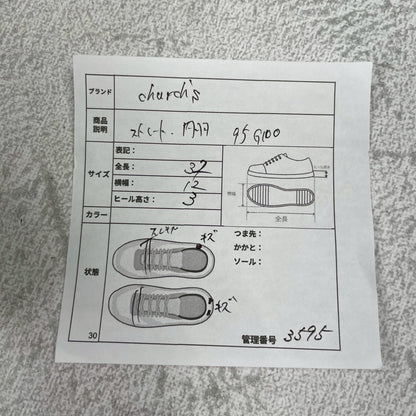 ブランド church's
商品説明 ストレート. 95 G100
サイズ
表記：
全長： 32
横幅： 12
ヒール高さ： 3
ヒール高さ
横幅
全長
カラー
状態
キズ
キズ
つま先：
かかと：
ソール：
30 管理番号 3595